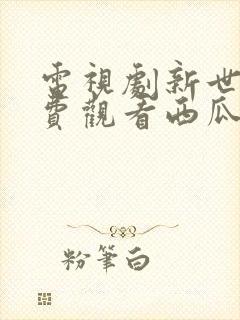 電視劇新世
費觀看西瓜
粉筆白